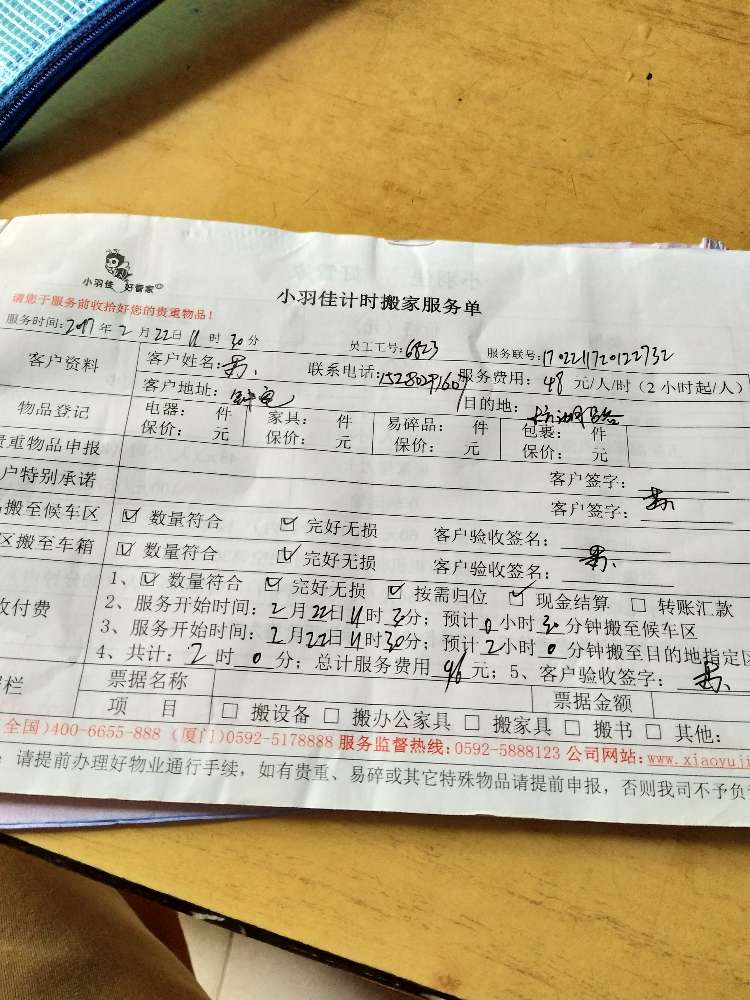 小羽佳 好管家
小羽佳计时搬家服务单
请您于服务前收拾好您的贵重物品!
服务时间:2017年2月22日11时30分 员工工号:6823 服务联号:170221120122732
客户资料 客户姓名: 联系电话: 服务费用:48元/人/时(2小时起/人)
客户地址: 目的地:
物品登记 电器: 件 家具: 件 易碎品: 件 包裹: 件
保价: 元 保价: 元 保价: 元 保价: 元
贵重物品申报 客户签字:
户特别承诺 客户签字:
搬至候车区 ☑ 数量符合 ☑ 完好无损 客户验收签名:
区搬至车箱 ☑ 数量符合 ☑ 完好无损 客户验收签名:
1、☑ 数量符合 ☑ 完好无损 ☑ 按需归位 ☑ 现金结算 □ 转账汇款
收付费 2、服务开始时间:2月22日11时30分;预计0小时30分钟搬至候车区
3、服务开始时间:2月22日11时30分;预计2小时0分钟搬至目的地指定区
4、共计:2时0分;总计服务费用96元;5、客户验收签字:
栏 票据名称 票据金额
项 目 □ 搬设备 □ 搬办公家具 □ 搬家具 □ 搬书 □ 其他:
(全国)400-6655-888 (厦门)0592-5178888 服务监督热线:0592-5888123 公司网站:www.xiaoyuji
:请提前办理好物业通行手续,如有贵重、易碎或其它特殊物品请提前申报,否则我司不予负